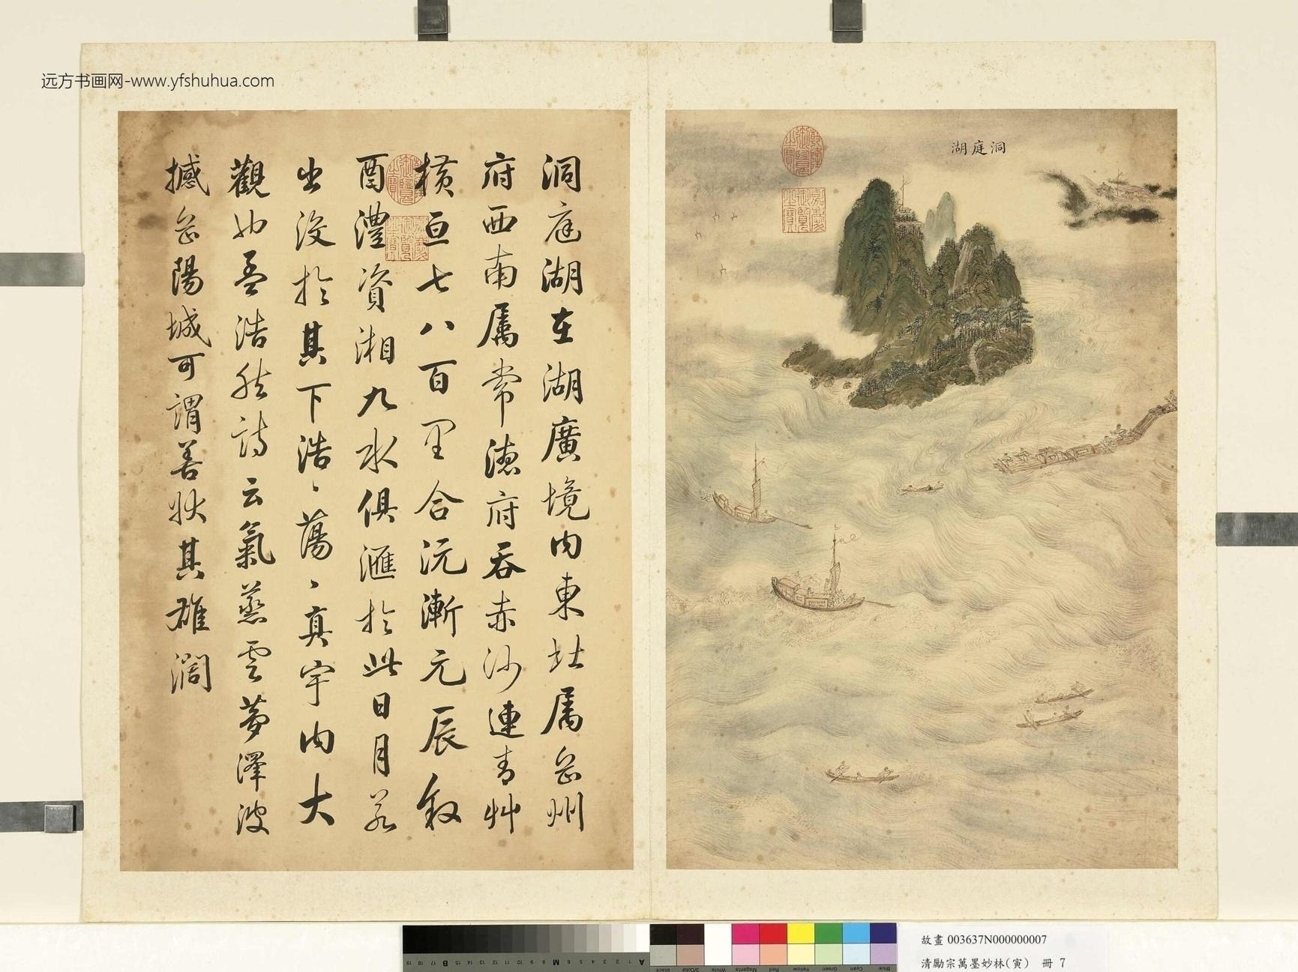 远方书画网-www.yfshuhua.com
湖庭洞
洞庭湖在湖廣境内東北属岳州
府西南属常德府吞赤沙連青艸
横亘七八百里合沅漸元辰敘
酉澧資湘九水俱滙於此日月若
出没於其下浩、蕩、真宇内大
觀也孟浩然詩云氣蒸雲夢澤波
撼岳陽城可謂善狀其雄濶
故畫 003637N000000007
清勵宗萬墨妙林(寅) 冊 7